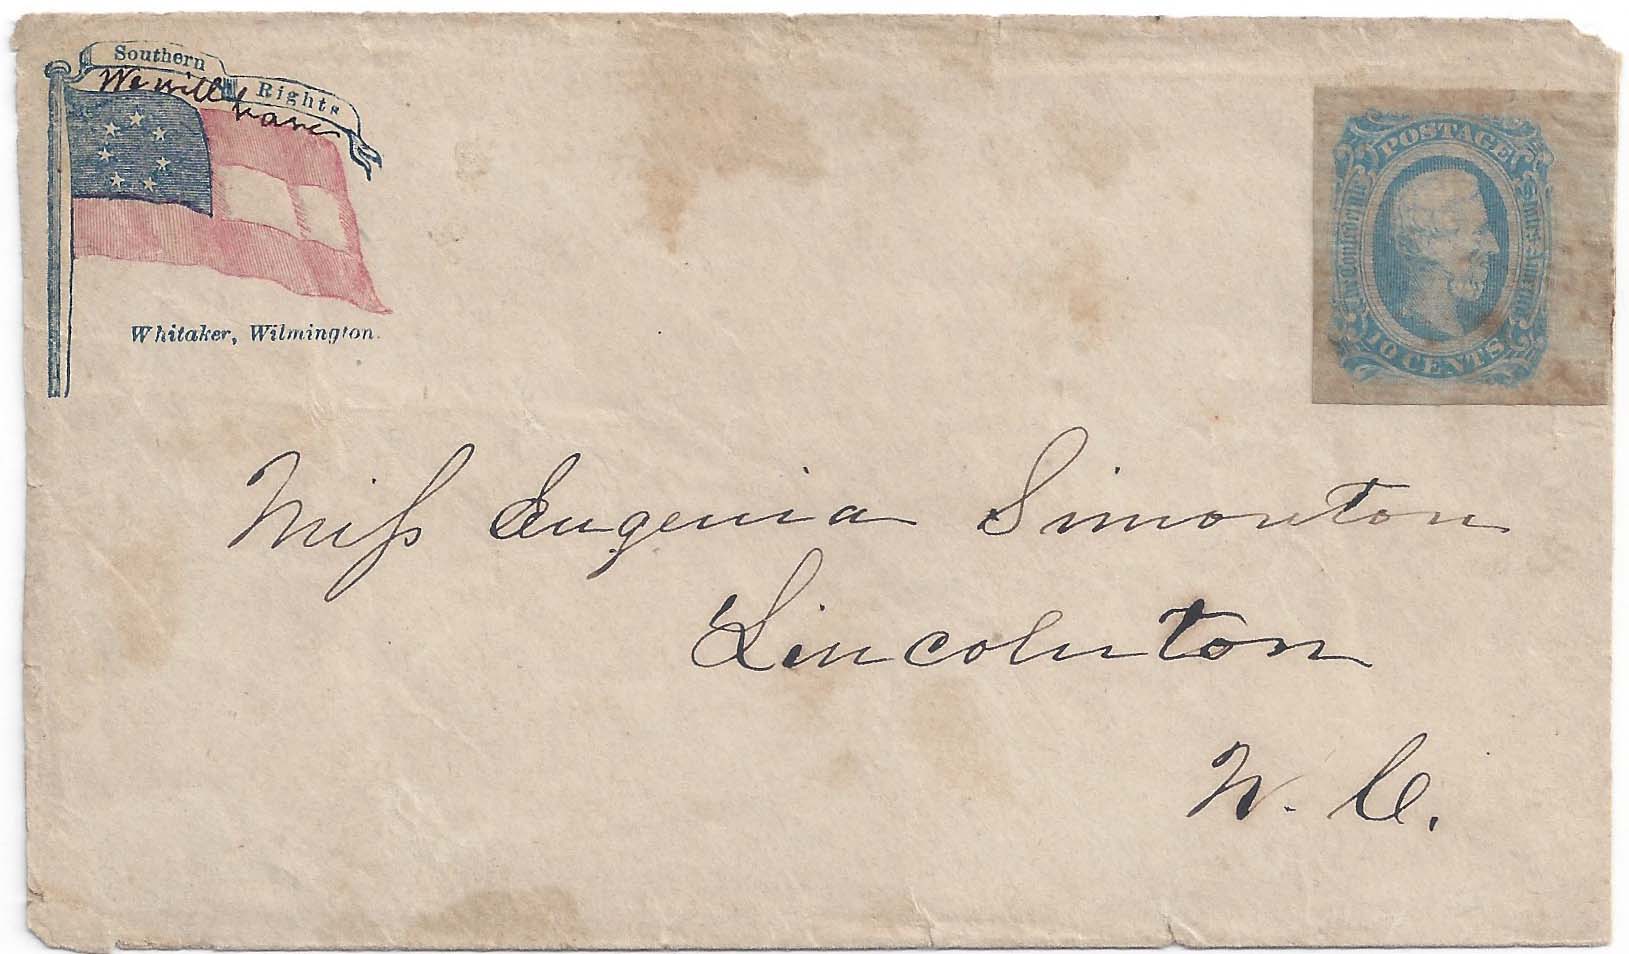 Southern
Rights
We will have
Whitaker, Wilmington.
POSTAGE
The Confederate States of America
10 CENTS
Miss Eugenia Simonton
Lincolnton
N. C.